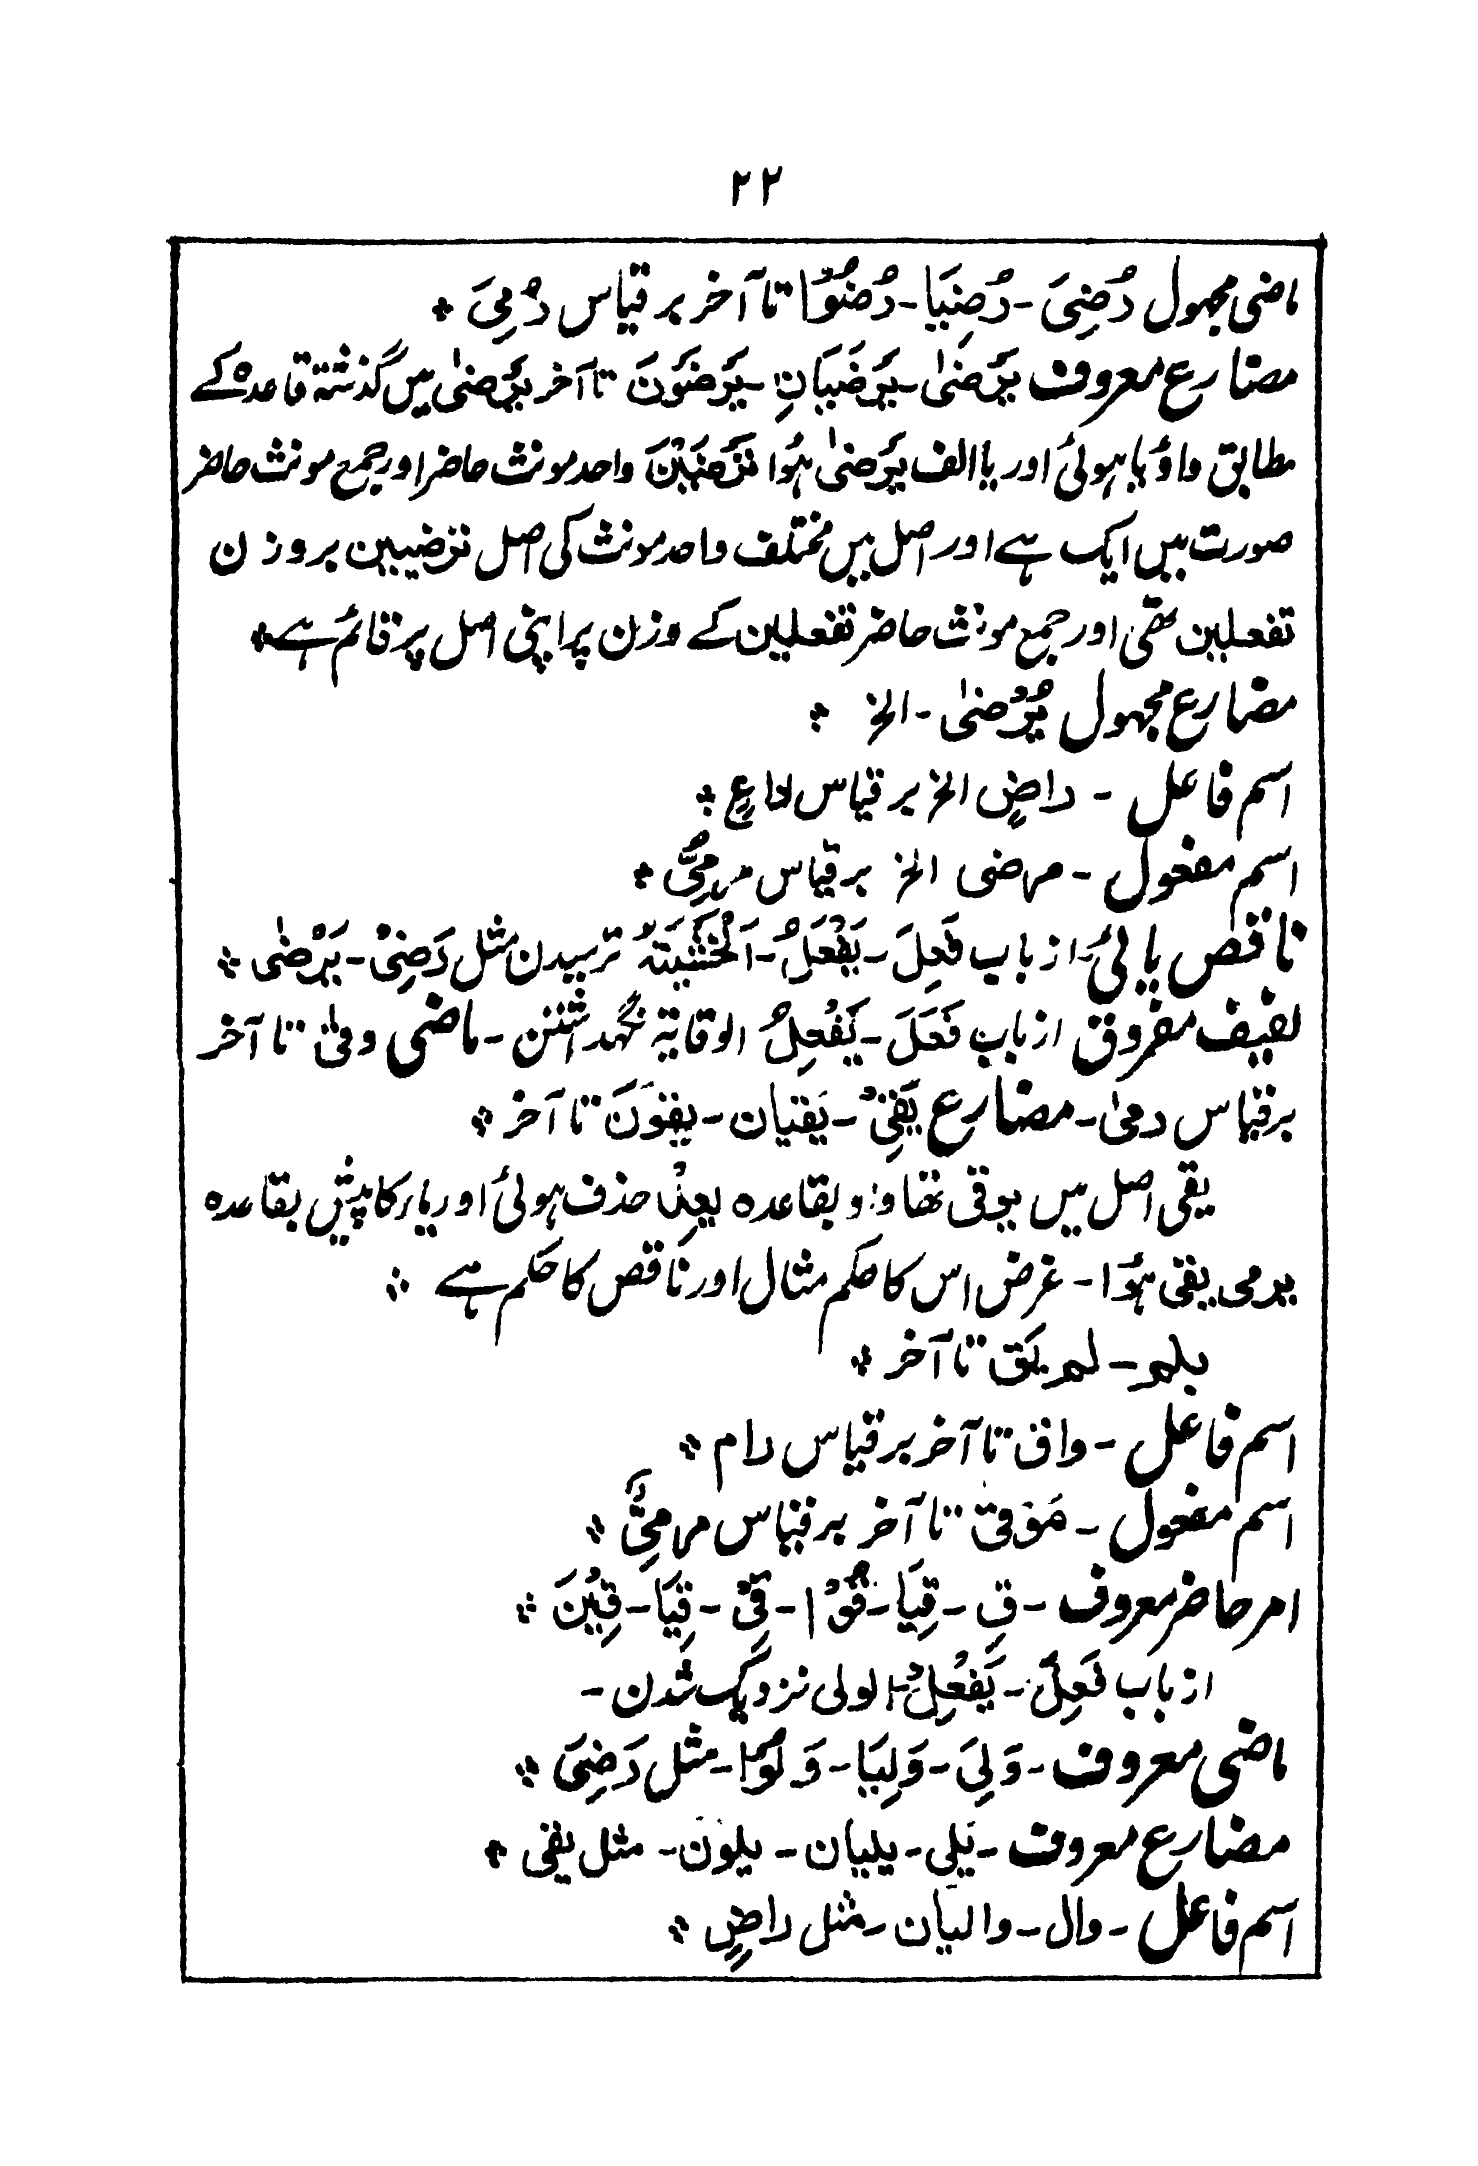 ۲۲
ماضی مجہول رُضِیَ - رُضِیَا - رُضُوْا تا آخر بر قیاس رُمِیَ ۞
مضارع معروف یَرْضٰی - یَرْضَیَانِ - یَرْضَوْنَ تا آخر یَرْضٰی میں گذشتہ قاعدہ کے
مطابق واؤ یا ہوئی اور یا الف یَرْضٰی ہؤا تَرْضَیْنَ واحد مونث حاضر اور جمع مونث حاضر
صورت میں ایک ہے اور اصل میں مختلف واحد مونث کی اصل ترضیین بر وزن
تفعلین تھی اور جمع مونث حاضر تفعلین کے وزن پر اپنی اصل پر قائم ہے ۞
مضارع مجہول یُرْضٰی - الخ ۞
اسم فاعل - راضٍ الخ بر قیاس داعٍ ۞
اسم مفعول - مرضی الخ بر قیاس مرمِیٌّ ۞
ناقص یائی از باب فَعِلَ - یَفْعَلُ - اَلْخَشْیَتَہُ ترسیدن مثل رَضِیَ - یَرْضٰی ۞
لفیف مفروق از باب فَعَلَ - یَفْعِلُ الوقایۃ نگہداشتن - ماضی وقیٰ تا آخر
بر قیاس رمیٰ - مضارع یَقِیْ - یَقیان - یقُونَ تا آخر ۞
یقی اصل میں یوقی تھا واو بقاعدہ یعِدُ حذف ہوئی اور یار کا پیش بقاعدہ
یرمی یقی ہؤا - غرض اس کا حکم مثال اور ناقص کا حکم ہے ۞
بلم - لم یَق تا آخر ۞
اسم فاعل - واق تا آخر بر قیاس رام ۞
اسم مفعول - مَوقیّ تا آخر بر قیاس مرمِیٌّ ۞
امر حاضر معروف - قِ - قِیَا - قُوْا - قِیْ - قِیَا - قِیْنَ ۞
از باب فَعِلَ - یَفْعِلُ - الولی نزدیک شدن -
ماضی معروف - وَلِیَ - وَلِیَا - وَلُوْا - مثل رَضِیَ ۞
مضارع معروف - یَلِی - یلیان - یلون - مثل یقی ۞
اسم فاعل - وال - والیان - مثل راضٍ ۞